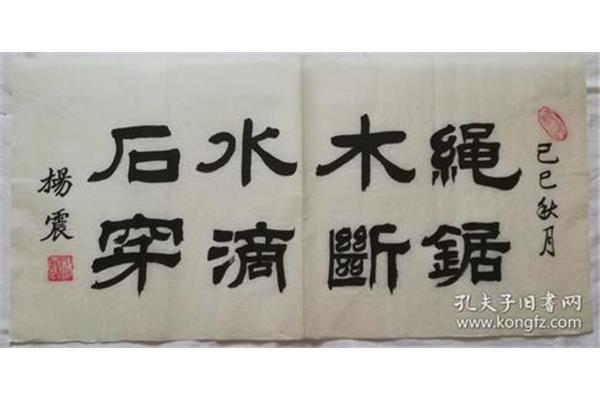 己巳秋月
绳鋸
木斷
水滴
石穿
楊震
孔夫子旧书网
www.kongfz.com